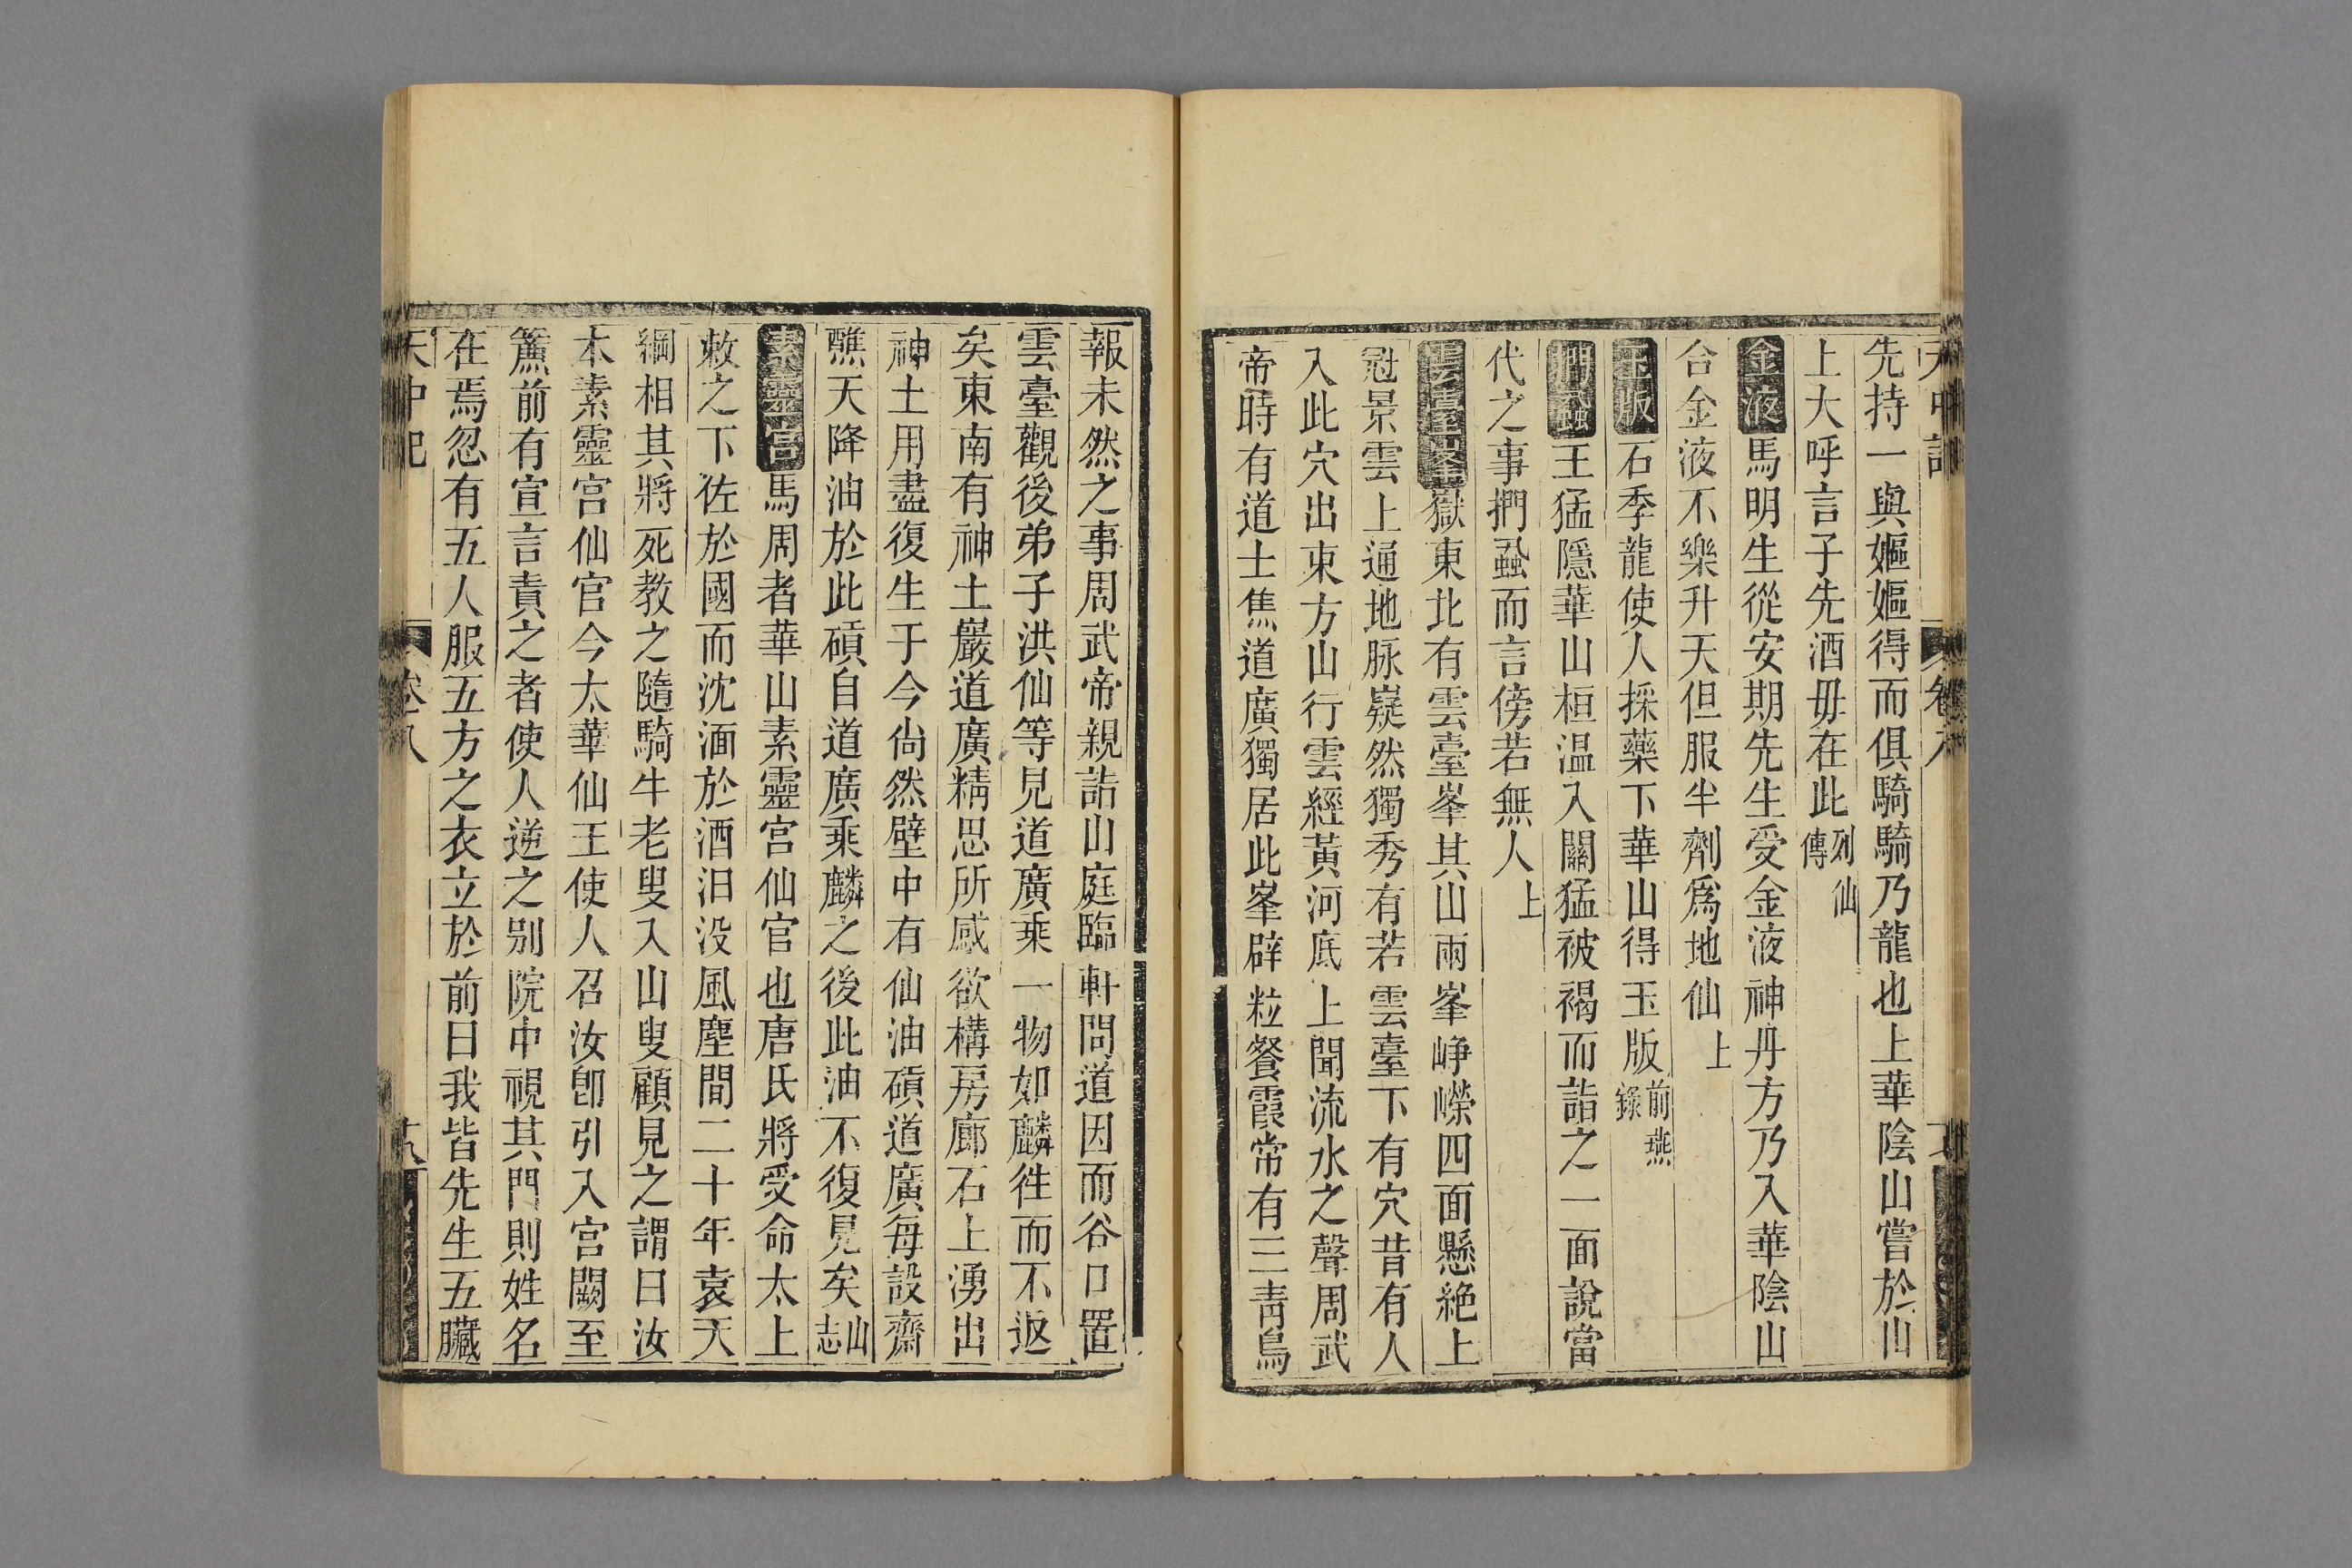 先持一與嫗嫗得而俱騎騎乃龍也上華陰山嘗於山
上大呼言子先酒毋在此列仙傳
金液馬明生從安期先生受金液神丹方乃入華陰山
合金液不樂升天但服半劑爲地仙上
玉版石季龍使人採藥下華山得玉版前燕錄
捫蝨王猛隱華山桓温入關猛被褐而詣之一面說當
代之事捫蝨而言傍若無人上
雲臺峯嶽東北有雲臺峯其山兩峯崢嶸四面懸絶上
冠景雲上通地脉嶷然獨秀有若雲臺下有穴昔有人
入此穴出東方山行雲經黃河底上聞流水之聲周武
帝時有道士焦道廣獨居此峯辟粒餐霞常有三靑鳥
報未然之事周武帝親詣山庭臨軒問道因而谷口置
雲臺觀後弟子洪仙等見道廣乘一物如麟徃而不返
矣東南有神土巖道廣精思所感欲構房廊石上湧出
神土用盡復生于今尙然壁中有仙油磧道廣每設齋
醮天降油於此磧自道廣乘麟之後此油不復見矣山志
素靈宮馬周者華山素靈宮仙官也唐氏將受命太上
敕之下佐於國而沈湎於酒汨没風塵間二十年袁天
綱相其將死教之隨騎牛老叟入山叟顧見之謂曰汝
本素靈宮仙官今太華仙王使人召汝卽引入宮闕至
簾前有宣言責之者使人逆之别院中視其門則姓名
在焉忽有五人服五方之衣立於前曰我皆先生五臟
天中記
卷八